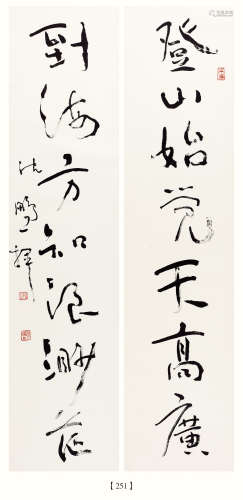 登山始觉天高廣
到海方知浪渺茫
沈鹏一擇
【251】